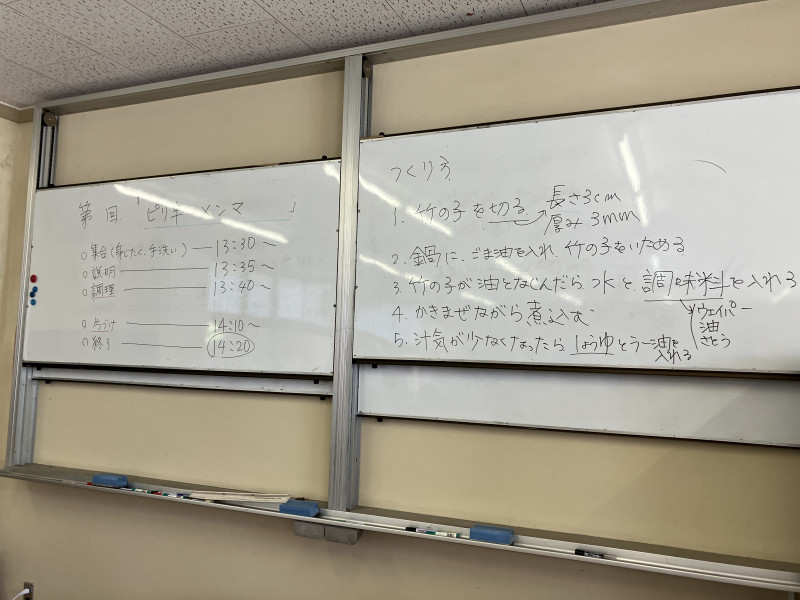 第 回 「ピリキ メンマ 」
○集合(身じたく、手洗い) ― 13:30〜
○説明 ― 13:35〜
○調理 ― 13:40〜
○片づけ ― 14:10〜
○終了 ― 14:20
つくり方
1. 竹の子を切る 長さ3cm
厚み3mm
2. 鍋に、ごま油を入れ、竹の子をいためる
3. 竹の子が油となじんだら水と、調味料を入れる
ウェイパー
油
さとう
4. かきまぜながら煮込む
5. 汁気が少なくなったらしょうゆとラー油を
入れる